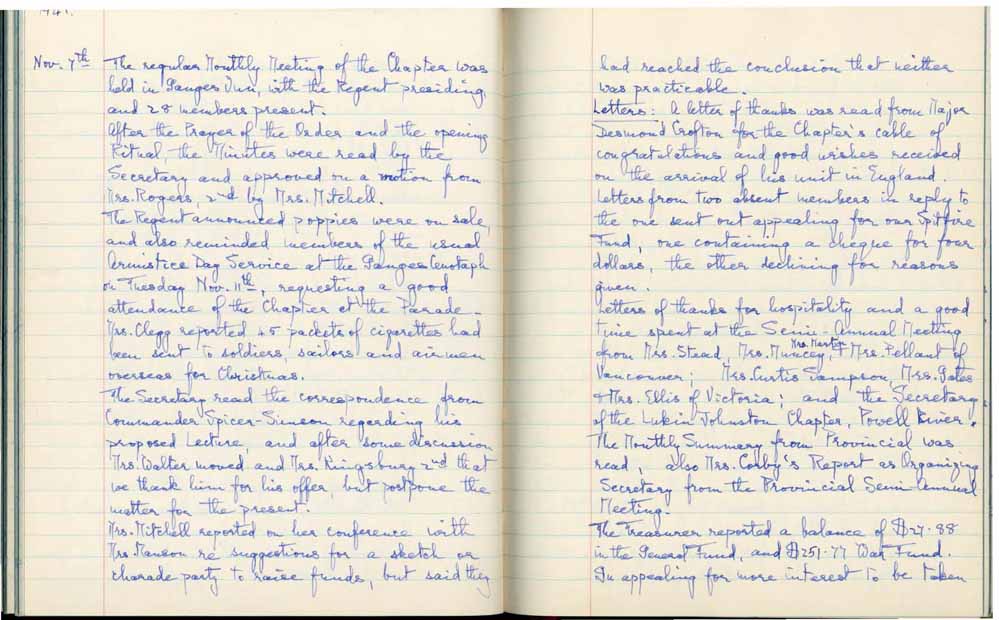 1941.
Nov. 7th The regular Monthly Meeting of the Chapter was
held in Ganges Inn, with the Regent presiding
and 28 members present.
After the Prayer of the Order and the opening
Ritual, the Minutes were read by the
Secretary and approved on a motion from
Mrs. Rogers, 2nd by Mrs. Mitchell.
The Regent announced poppies were on sale,
and also reminded members of the usual
Armistice Day Service at the Ganges Cenotaph
on Tuesday Nov. 11th, requesting a good
attendance of the Chapter at the Parade.
Mrs. Clegg reported 45 packets of cigarettes had
been sent to soldiers, sailors and airmen
overseas for Christmas.
The Secretary read the correspondence from
Commander Spicer-Simson regarding his
proposed Lecture, and after some discussion
Mrs. Walter moved and Mrs. Kingsbury 2nd that
we thank him for his offer, but postpone the
matter for the present.
Mrs. Mitchell reported on her conference with
Mrs. Manson re suggestions for a sketch or
charade party to raise funds, but said they
had reached the conclusion that neither
was practicable.
Letters: A letter of thanks was read from Major
Desmond Crofton for the Chapter's cable of
congratulations and good wishes received
on the arrival of his unit in England.
Letters from two absent members in reply to
the one sent out appealing for our Spitfire
Fund, one containing a cheque for four
dollars, the other declining for reasons
given.
Letters of thanks for hospitality and a good
time spent at the Semi-Annual Meeting
from Mrs. Stead, Mrs. Muncey, Mrs. Martin + Mrs. Pellant of
Vancouver; Mrs. Curtis Sampson, Mrs. Gates
+ Mrs. Ellis of Victoria; and the Secretary
of the Lukin Johnston Chapter, Powell River.
The Monthly Summary from Provincial was
read, also Mrs. Corby's Report as Organizing
Secretary from the Provincial Semi-Annual
Meeting.
The Treasurer reported a balance of $27.88
in the General Fund, and $251.77 War Fund.
In appealing for more interest to be taken